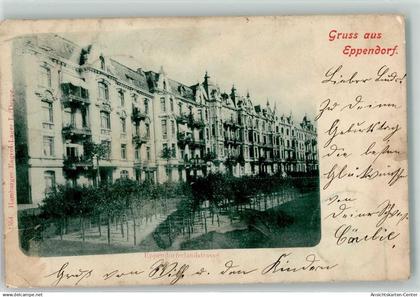 Gruss aus
Eppendorf.
Lieber Lud!
zu deinem
Geburtstag
die besten
Glückwünsche
von
deiner Schwg.
Cäcilie.
Eppendorferlandstrasse
Gruß von Wilh. u. den Kindern
Hamburger Engros-Lager
www.ansichtskarten-center.de
Ansichtskarten-Center